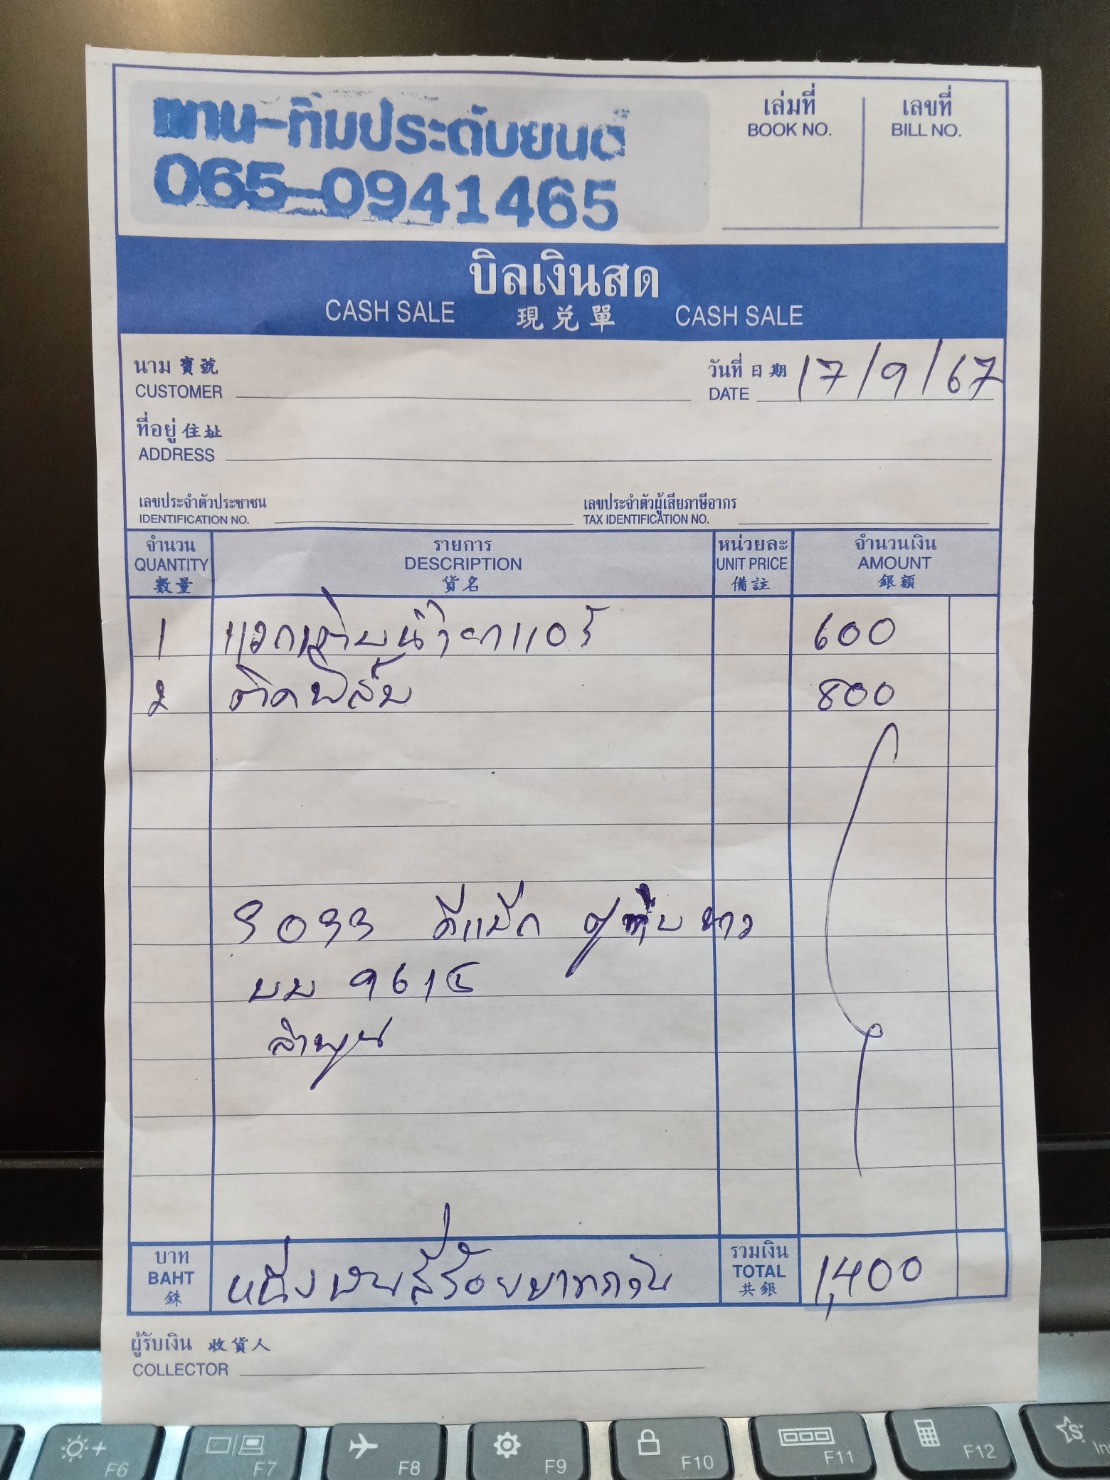 แทน-ทิมประดับยนต์
065-0941465
เล่มที่ เลขที่
BOOK NO. BILL NO.
บิลเงินสด
CASH SALE 現兌單 CASH SALE
นาม 寶號 วันที่ 日期 17/9/67
CUSTOMER DATE
ที่อยู่ 住址
ADDRESS
เลขประจำตัวประชาชน เลขประจำตัวผู้เสียภาษีอากร
IDENTIFICATION NO. TAX IDENTIFICATION NO.
จำนวน รายการ หน่วยละ จำนวนเงิน
QUANTITY DESCRIPTION UNIT PRICE AMOUNT
數量 貨名 備註 銀額
1 น้ำยาแอร์ 600
2 ติดฟิล์ม 800
ดีแม็ก ตู้ทึบ ขาว
บม 9615
ลำพูน
บาท หนึ่งพันสี่ร้อยบาทถ้วน รวมเงิน 1,400
BAHT TOTAL
銖 共銀
ผู้รับเงิน 收貨人
COLLECTOR
F6 F7 F8 F9 F10 F11 F12 Ins